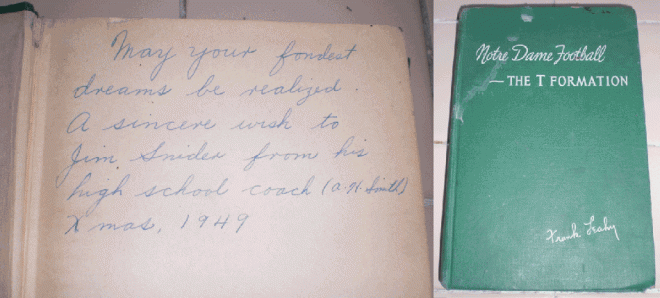 May your fondest
dreams be realized.
A sincere wish to
Jim Snider from his
high school coach (A.H. Smith)
Xmas, 1949
Notre Dame Football
— THE T FORMATION
Frank Leahy